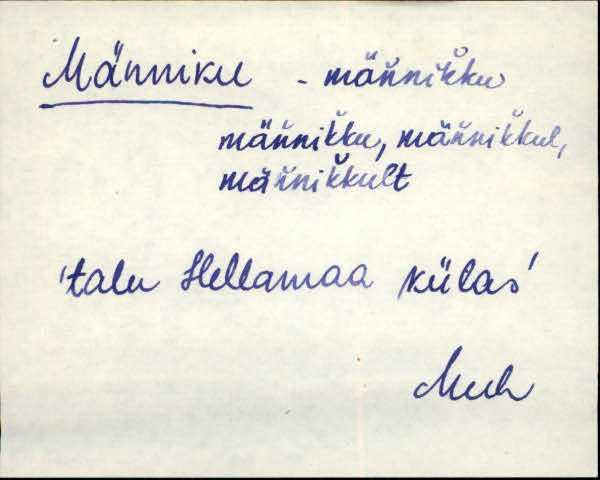 Männiku - män̆nik̆ku
män̆nik̆ku, män̆nik̆kul,
män̆nik̆kult
'talu Hellamaa külas'
Muh